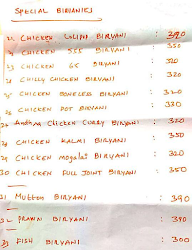 SPECIAL BIRYANIES
22 CHICKEN LOLIPOP BIRYANI : 390
CHICKEN 555 BIRYANI : 350
CHICKEN 65 BIRYANI : 320
CHILLY CHICKEN BIRYANI : 320
CHICKEN BONELESS BIRYANI : 320
CHICKEN POT BIRYANI : 320
Andhra Chicken Curry BIRYANI : 320
CHICKEN KALMI BIRYANI : 350
CHICKEN Mogalai BIRYANI : 320
CHICKEN FULL JOINT BIRYANI : 350
31 MUTTON BIRYANI : 390
32 PRAWN BIRYANI : 390
33 FISH BIRYANI : 300